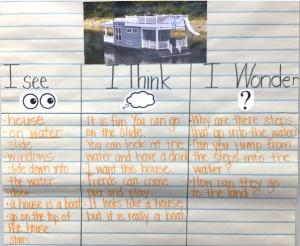 I see
I Think
I Wonder
?
· house
· on water
· slide
· windows
· slide down into
the water
· door
· a house is a boat
· go on the top of
the house
· stairs
· It is fun. You can go
on the slide.
· You can look at the
water and have a drink
· I want this house.
· Friends can come
over and play.
· It looks like a house,
but it is really a boat.
· Why are there steps
that go into the water?
· Can you jump from
the steps into the
water?
· How can they go
to the land?